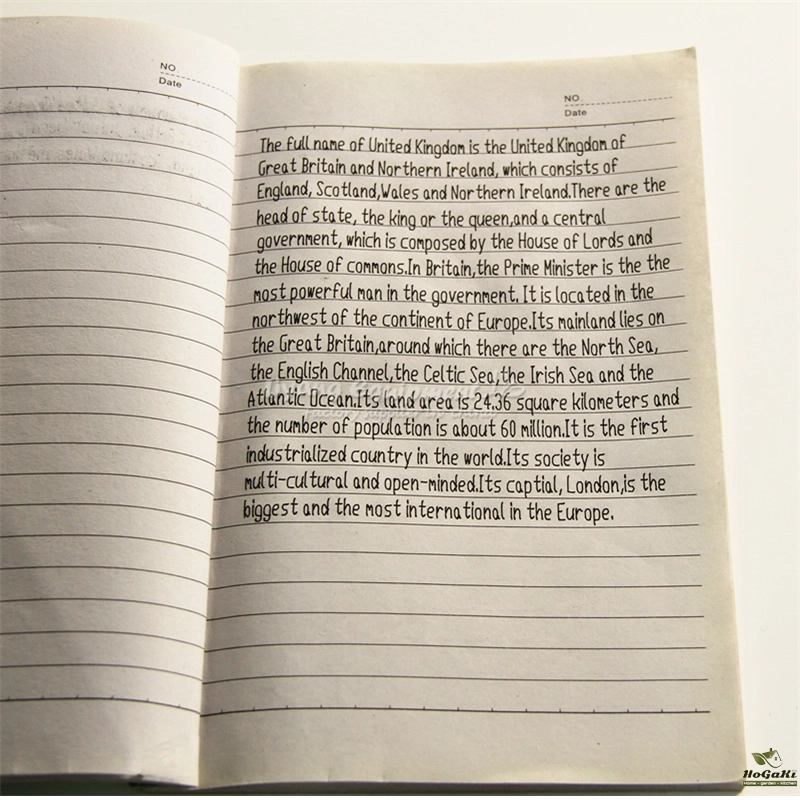 NO
Date
NO.
Date
The full name of United Kingdom is the United Kingdom of
Great Britain and Northern Ireland, which consists of
England, Scotland,Wales and Northern Ireland.There are the
head of state, the king or the queen,and a central
government, which is composed by the House of Lords and
the House of commons.In Britain,the Prime Minister is the the
most powerful man in the government. It is located in the
northwest of the continent of Europe.Its mainland lies on
the Great Britain,around which there are the North Sea,
the English Channel,the Celtic Sea,the Irish Sea and the
Atlantic Ocean.Its land area is 24.36 square kilometers and
the number of population is about 60 million.It is the first
industrialized country in the world.Its society is
multi-cultural and open-minded.Its captial, London,is the
biggest and the most international in the Europe.
HoGaKi
Home - garden - kitchen